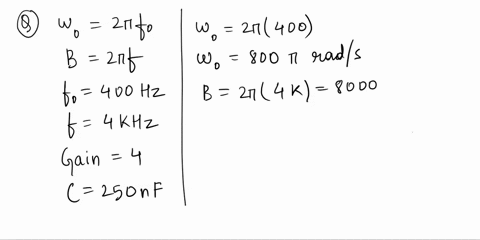 Q
ω₀ = 2πf₀
B = 2πf
f₀ = 400 Hz
f = 4 KHz
Gain = 4
C = 250 nF
ω₀ = 2π(400)
ω₀ = 800 π rad/s
B = 2π(4K) = 8000